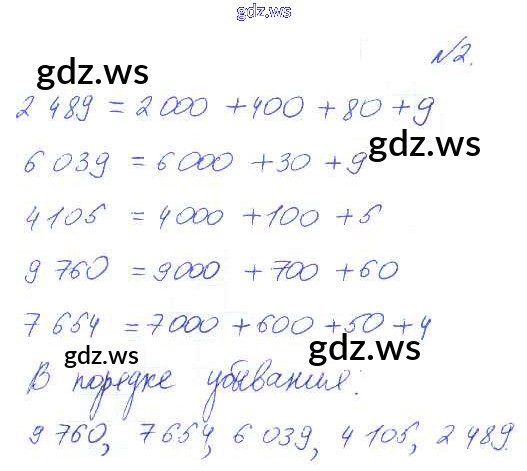 gdz.ws
№2.
gdz.ws
2 489 = 2 000 + 400 + 80 + 9
gdz.ws
6 039 = 6 000 + 30 + 9
4 105 = 4000 + 100 + 5
9 760 = 9000 + 700 + 60
7 654 = 7000 + 600 + 50 + 4
gdz.ws
gdz.ws
В порядке убывания:
9 760, 7 654, 6 039, 4 105, 2 489.